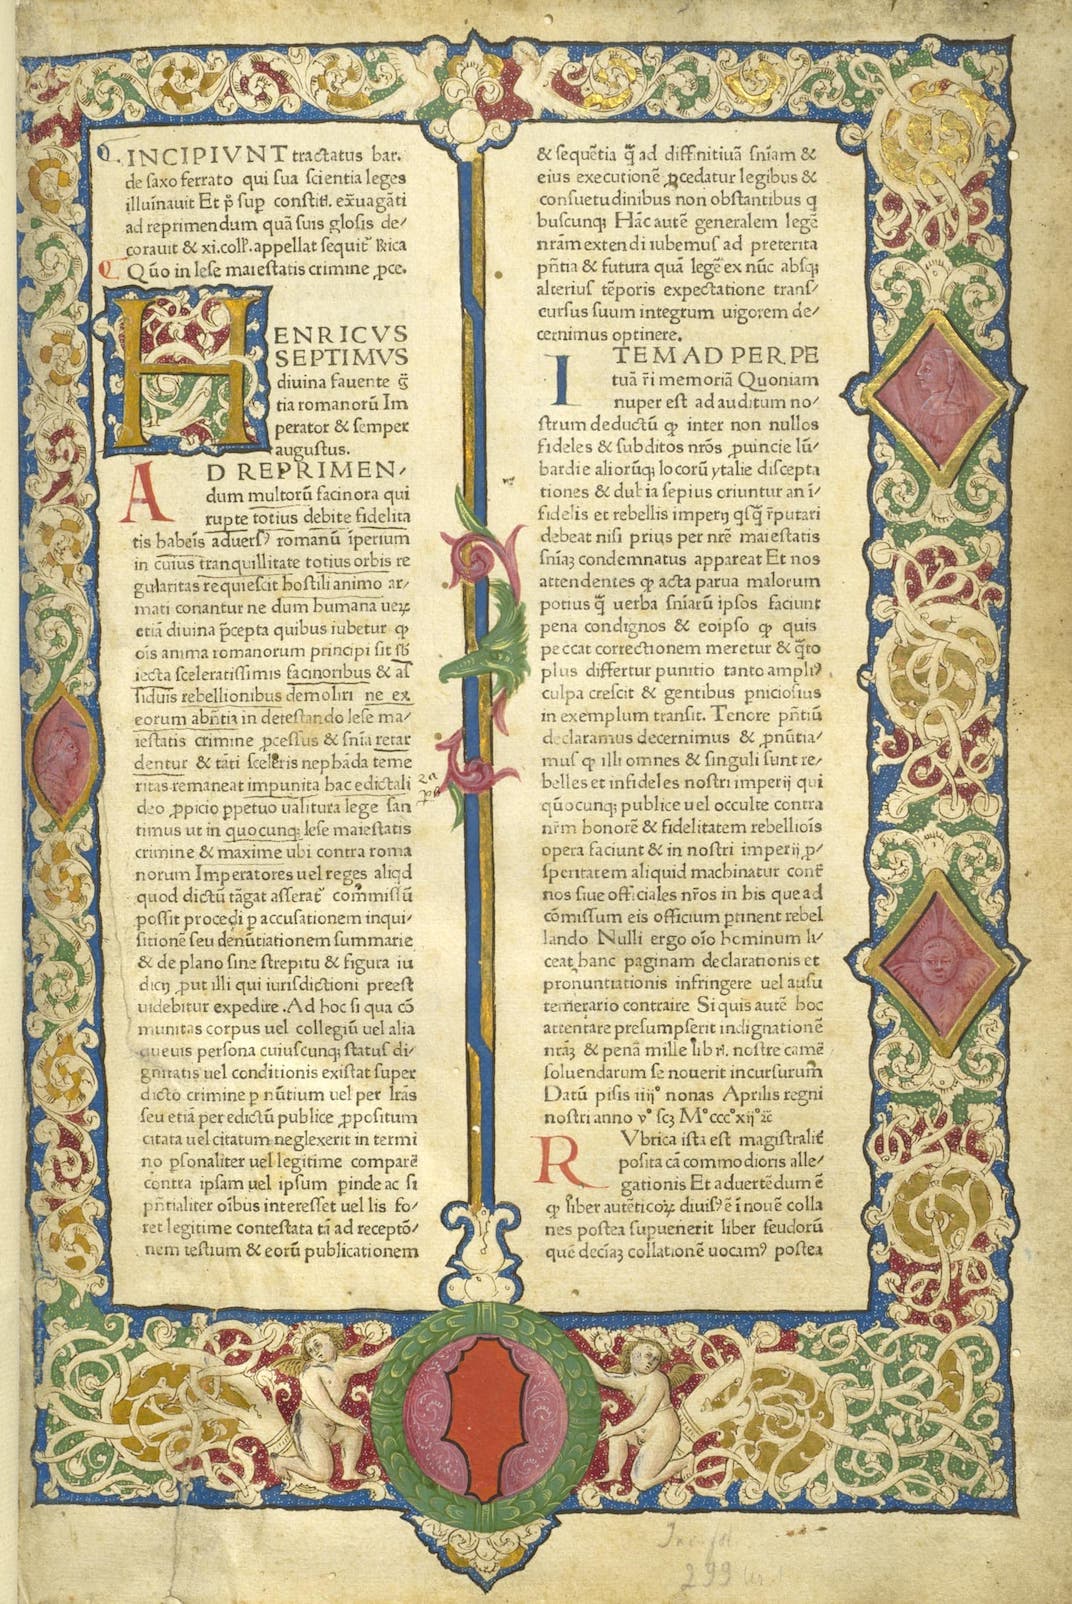 INCIPIVNT tractatus bar.
de saxo ferrato qui sua scientia leges
illuīnauit Et p̄ sup constitī. exͣuagāti
ad reprimendum quā suis glosis de⸗
corauit & xi. coll'. appellat sequit᷑ Rica
Qūo in lese maiestatis crimine ꝓce.
HENRICVS
SEPTIMVS
diuina fauente ḡ
tia romanorū Im
perator & semper
augustus.
AD REPRIMEN⸗
dum multorū facinora qui
rupte totius debite fidelita
tis habeīs aduersꝰ romanū īperium
in cuius tranquillitate totius orbis re
gularitas requiescit hostili animo ar⸗
mati conantur ne dum humana ueꝝ
etiā diuina p̄cepta quibus iubetur ꝙ
oīs anima romanorum principi sit sb̄
iecta sceleratissimis facinoribus & as
siduis rebellionibus demoliri ne ex
eorum abn̄tia in detestando lese ma⸗
iestatis crimine ꝓcessus & sn̄ia retar
dentur & tāti sceleris nephāda teme
ritas remaneat impunita hac edictali
deo ꝓpicio ꝑpetuo ualitura lege san
timus ut in quocunqꝫ lese maiestatis
crimine & maxime ubi contra roma
norum Imperatores uel reges aliqd
quod dictū tāgat asserat᷑ commissū
possit procedi ꝑ accusationem inqui⸗
sitionē seu denūtiationem summarie
& de plano sine strepitu & figura iu
dicij ꝓut illi qui iurisdictioni preest
uidebitur expedire. Ad hoc si qua cō
munitas corpus uel collegiū uel alia
queuis persona cuiuscunqꝫ status di⸗
gnitatis uel conditionis existat super
dicto crimine ꝑ nūtium uel per lr̄as
seu etiā per edictū publice ꝓppositum
citata uel citatum neglexerit in termi
no ꝑsonaliter uel legitime comparē
contra ipsam uel ipsum pinde ac si
pn̄tialiter oībus interesset uel lis fo⸗
ret legitime contestata tā ad receptō⸗
nem testium & eorū publicationem
& sequētia q̄ ad diffinitiuā sn̄iam &
eius executionē ꝓcedatur legibus &
consuetudinibus non obstantibus q
buscunqꝫ Hāc autē generalem legē
nr̄am extendi iubemus ad preterita
pn̄tia & futura quā legē ex nūc absqꝫ
alterius tēporis expectatione trans⸗
cursus suum integrum uigorem de⸗
cernimus optinere.
ITEM AD PERPE
tuā r̄i memoriā Quoniam
nuper est ad auditum no⸗
strum deductū ꝙ inter non nullos
fideles & subditos nr̄os ꝓuincie lū⸗
bardie aliorūqꝫ locorū ytalie discepta
tiones & dubia sepius oriuntur an ī⸗
fidelis et rebellis imperij qsq̄ r̄putari
debeat nisi prius per nr̄e maiestatis
sn̄iaꝫ condemnatus appareat Et nos
attendentes ꝙ acta parua malorum
potius q̄ uerba sn̄iarū ipsos faciunt
pena condignos & eoipso ꝙ quis
peccat correctionem meretur & q̄to
plus differtur punitio tanto amplꝰ
culpa crescit & gentibus pniciosius
in exemplum transit. Tenore pn̄tiū
declaramus decernimus & ꝓnūtia⸗
mus ꝙ illi omnes & singuli sunt re⸗
belles et infideles nostri imperij qui
qūocunqꝫ publice uel occulte contra
nr̄m honorē & fidelitatem rebelliōis
opera faciunt & in nostri imperij ꝓ⸗
speritatem aliquid machinatur cont̄
nos siue officiales nr̄os in his que ad
cōmissum eis officium ptinent rebel
lando Nulli ergo oīo hominum li⸗
ceat hanc paginam declarationis et
pronuntiationis infringere uel ausu
temerario contraire. Si quis autē hoc
attentare presumpserit indignationē
nr̄aꝫ & penā mille libr̄. nostre camē
soluendarum se nouerit incursurum
Datū pisis iiijº nonas Aprilis regni
nostri anno vº scꝫ Mº cccº xijº ⁊c̄
RVbrica ista est magistralit̄
posita cā commodioris alle⸗
gationis Et aduertēdum ē
ꝙ liber autēticoꝝ diuisꝰ ē ī nouē colla
nes postea supuenerit liber feudorū
quē deciāꝫ collationē uocamꝰ postea
Inc. fol.
299